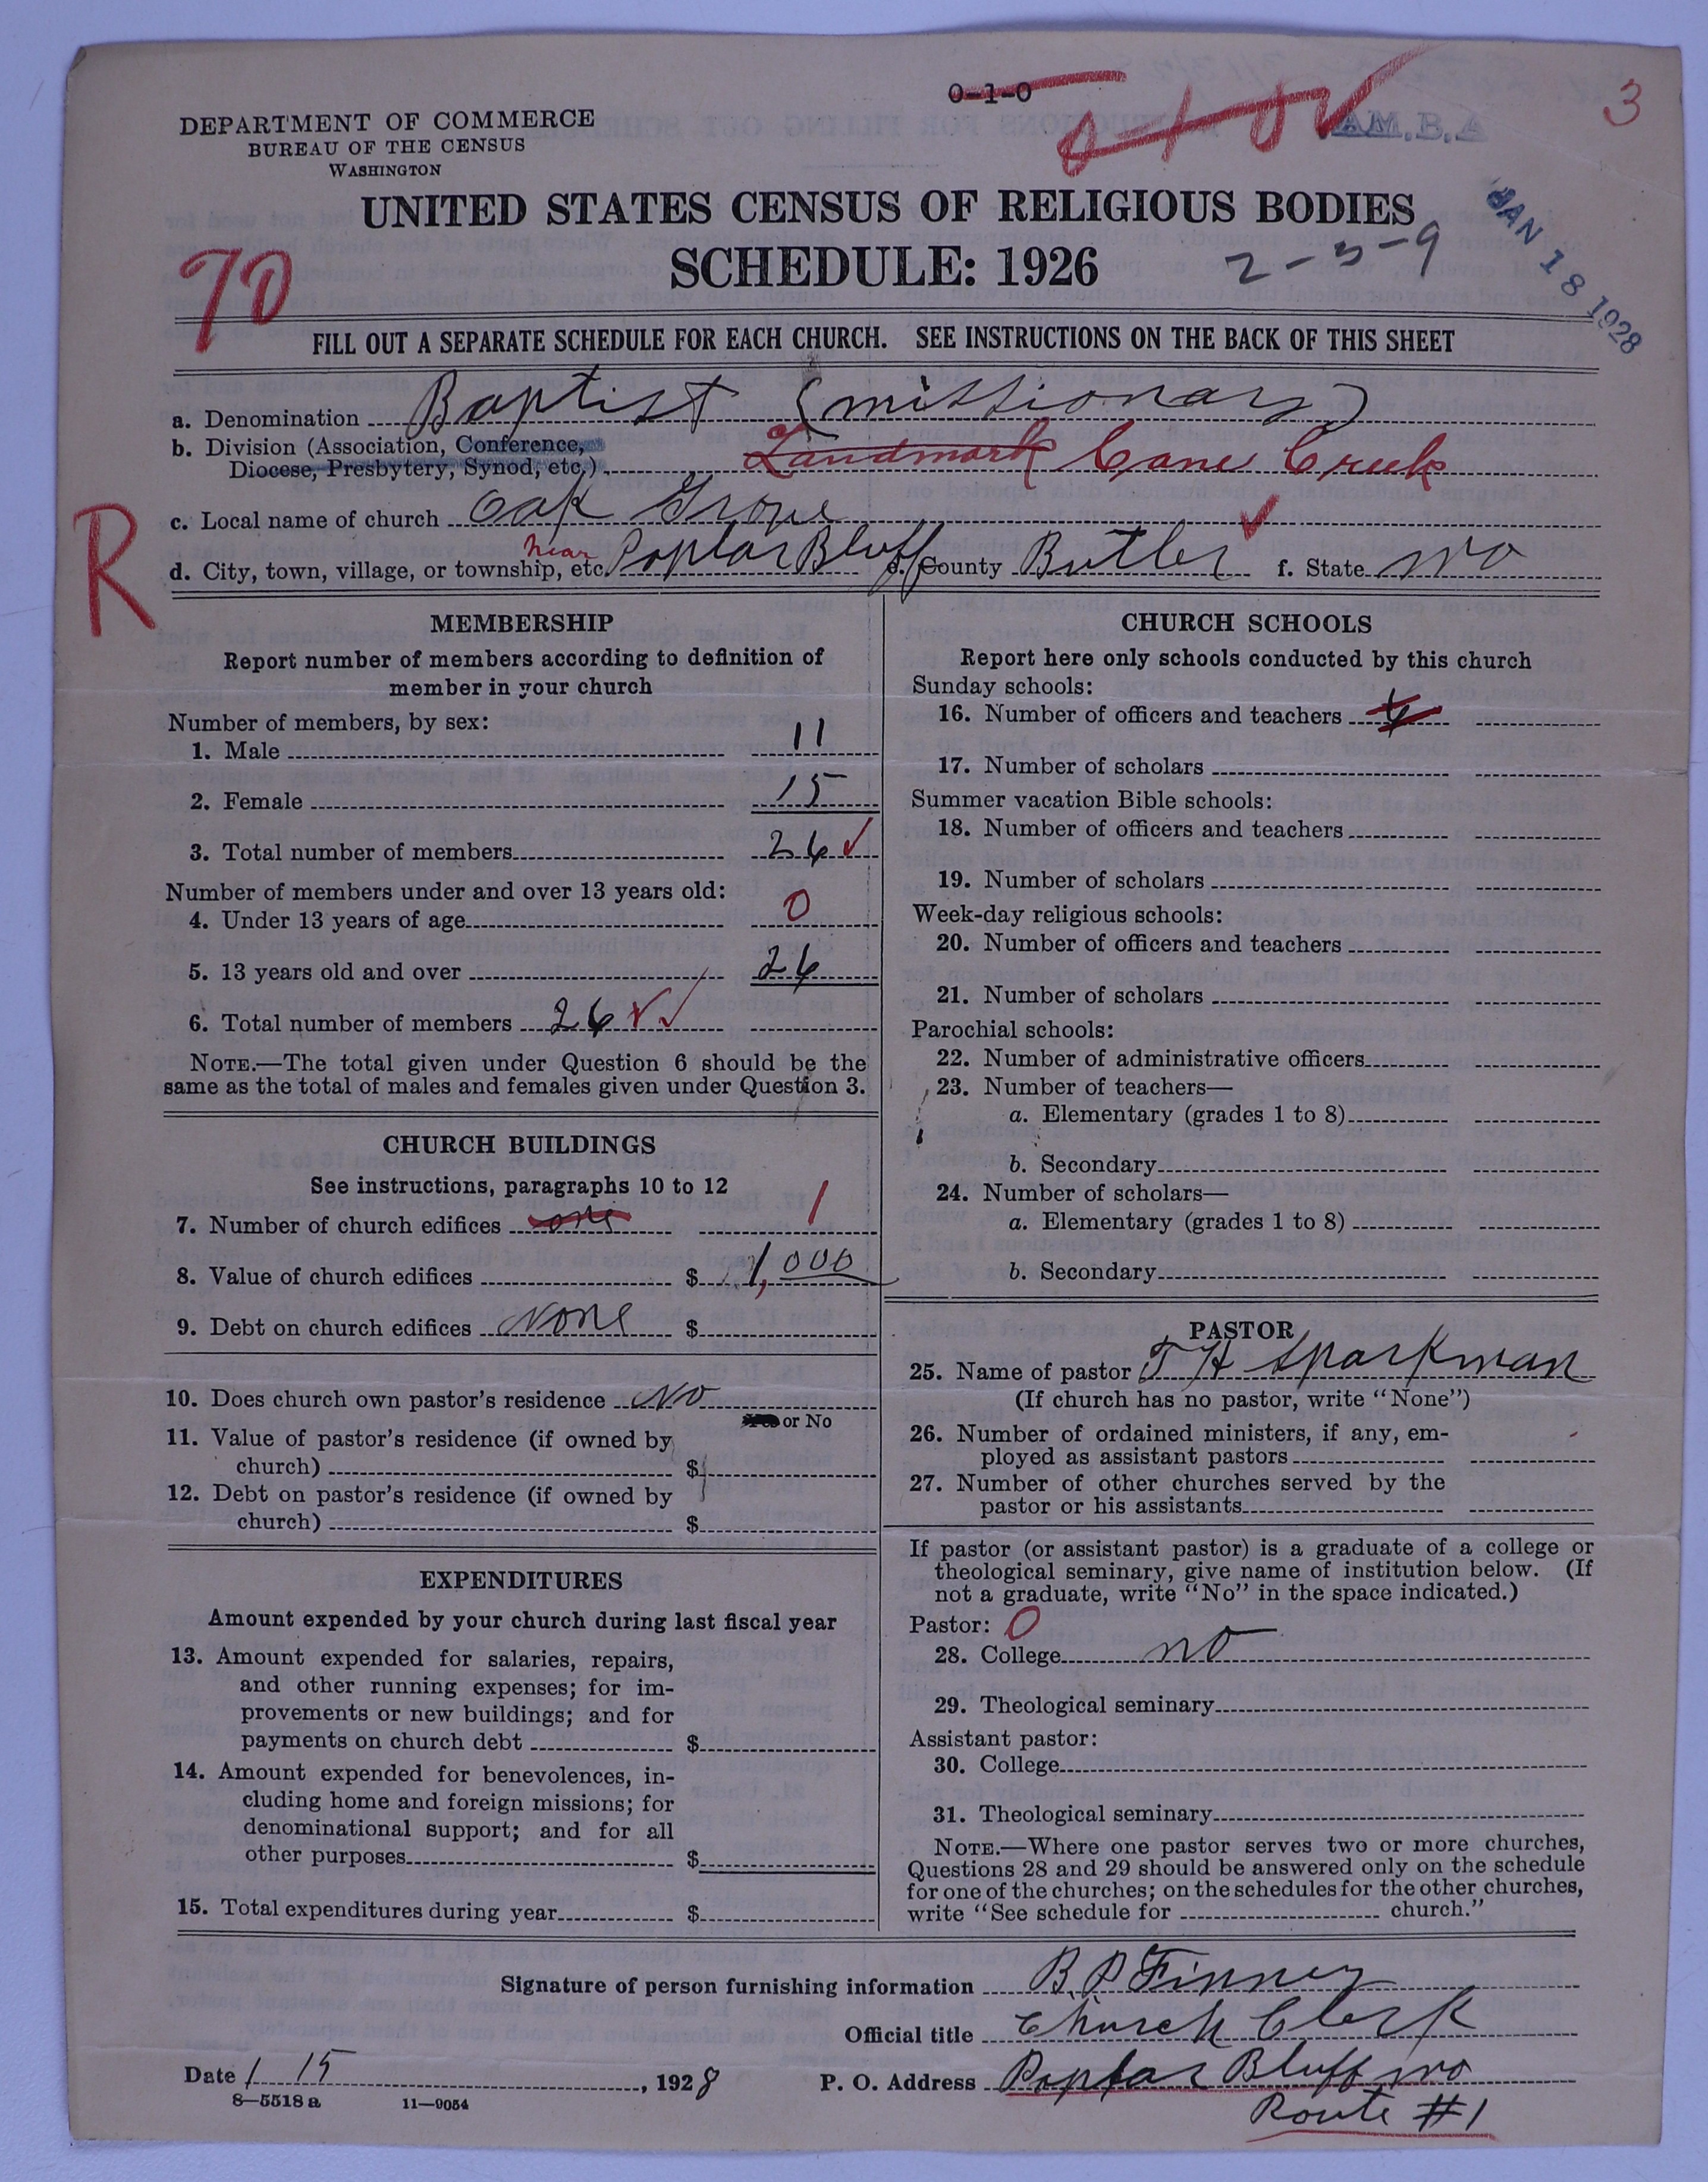 0-1-0
3
AM.B.A
DEPARTMENT OF COMMERCE
BUREAU OF THE CENSUS
WASHINGTON
UNITED STATES CENSUS OF RELIGIOUS BODIES
SCHEDULE: 1926
2-5-9
JAN 18 1928
70
FILL OUT A SEPARATE SCHEDULE FOR EACH CHURCH. SEE INSTRUCTIONS ON THE BACK OF THIS SHEET
a. Denomination Baptist (missionary)
b. Division (Association, Conference,
Diocese, Presbytery, Synod, etc.) Landmark Cane Creek
c. Local name of church Oak Grove
R
d. City, town, village, or township, etc. near Poplar Bluff e. County Butler f. State Mo
MEMBERSHIP
Report number of members according to definition of
member in your church
Number of members, by sex:
1. Male 11
2. Female 15
3. Total number of members 26
Number of members under and over 13 years old:
4. Under 13 years of age 0
5. 13 years old and over 26
6. Total number of members 26
NOTE.—The total given under Question 6 should be the
same as the total of males and females given under Question 3.
CHURCH BUILDINGS
See instructions, paragraphs 10 to 12
7. Number of church edifices one 1
8. Value of church edifices $ 1,000
9. Debt on church edifices None $
10. Does church own pastor's residence No
Yes or No
11. Value of pastor's residence (if owned by
church) $
12. Debt on pastor's residence (if owned by
church) $
EXPENDITURES
Amount expended by your church during last fiscal year
13. Amount expended for salaries, repairs,
and other running expenses; for im-
provements or new buildings; and for
payments on church debt $
14. Amount expended for benevolences, in-
cluding home and foreign missions; for
denominational support; and for all
other purposes $
15. Total expenditures during year $
CHURCH SCHOOLS
Report here only schools conducted by this church
Sunday schools:
16. Number of officers and teachers
17. Number of scholars
Summer vacation Bible schools:
18. Number of officers and teachers
19. Number of scholars
Week-day religious schools:
20. Number of officers and teachers
21. Number of scholars
Parochial schools:
22. Number of administrative officers
23. Number of teachers—
a. Elementary (grades 1 to 8)
b. Secondary
24. Number of scholars—
a. Elementary (grades 1 to 8)
b. Secondary
PASTOR
25. Name of pastor T H Sparkman
(If church has no pastor, write "None")
26. Number of ordained ministers, if any, em-
ployed as assistant pastors
27. Number of other churches served by the
pastor or his assistants
If pastor (or assistant pastor) is a graduate of a college or
theological seminary, give name of institution below. (If
not a graduate, write "No" in the space indicated.)
Pastor: 0
28. College no
29. Theological seminary
Assistant pastor:
30. College
31. Theological seminary
NOTE.—Where one pastor serves two or more churches,
Questions 28 and 29 should be answered only on the schedule
for one of the churches; on the schedules for the other churches,
write "See schedule for church."
Signature of person furnishing information B P Finney
Official title Church Clerk
Date 1 15, 1928
P. O. Address Poplar Bluff Mo
Route #1
8-5518 a 11-9054